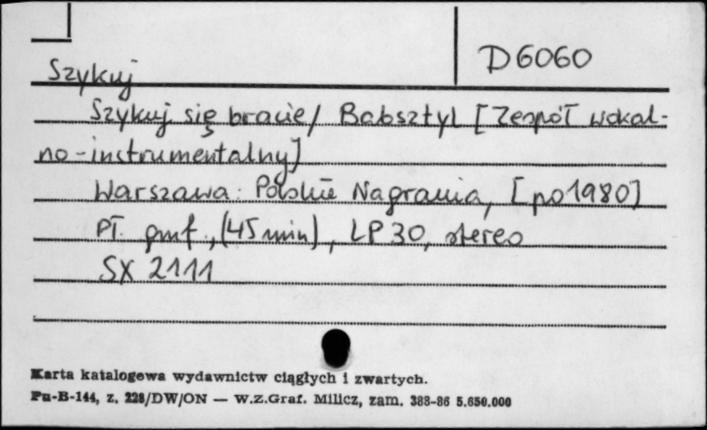 D6060
Szykuj
Szykuj się bracie / Babsztyl [Zespół wokal-
no-instrumentalny]
Warszawa: Polskie Nagrania, [po 1980]
Pł. gmf., (45 min), LP 30, stereo
SX 2111
Karta katalogowa wydawnictw ciągłych i zwartych.
Pu-B-144, z. 228/DW/ON — W.Z.Graf. Milicz, zam. 388-86 5.650.000